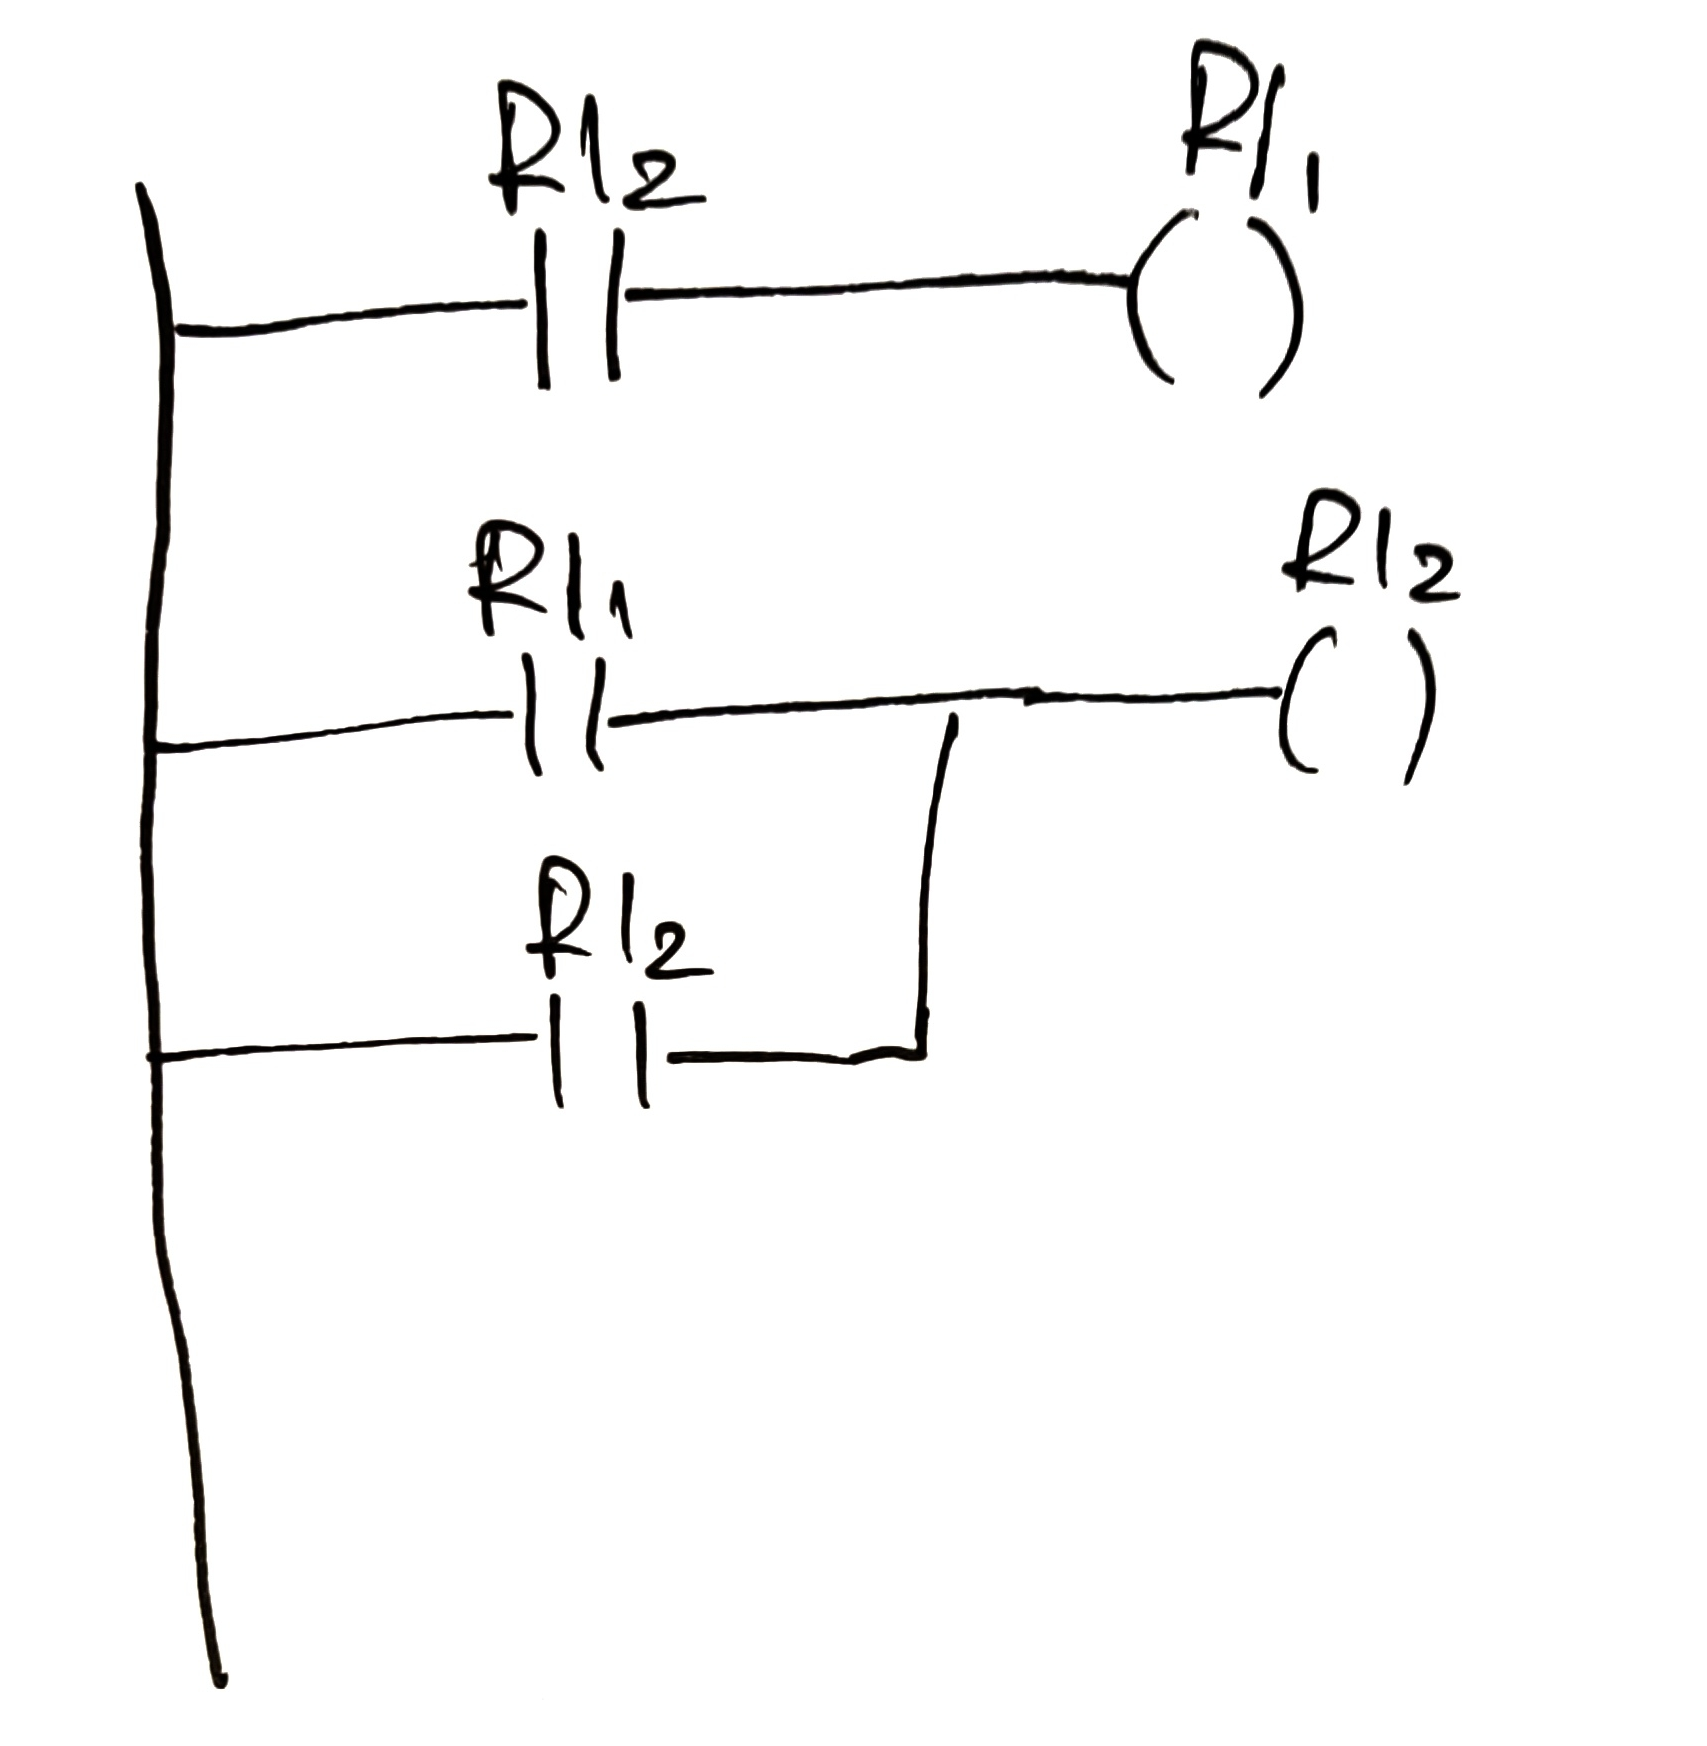 Rl2 Rl1
Rl1 Rl2
Rl2